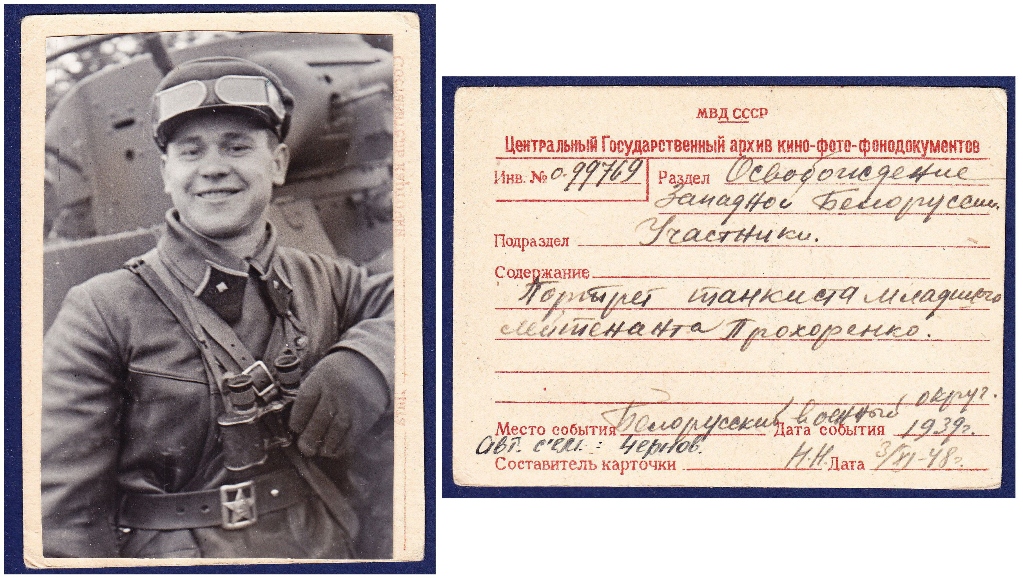 МВД СССР
Центральный Государственный архив кино-фото-фонодокументов
Инв. № о-99769 Раздел Освобождение
Западной Белоруссии.
Подраздел Участники.
Содержание
Портрет танкиста младшего
лейтенанта Прохоренко.
Место события Белорусский военный округ.
Дата события 1939г.
Авт. съем.: Чернов.
Составитель карточки Н.Н. Дата 3/XI-48г.